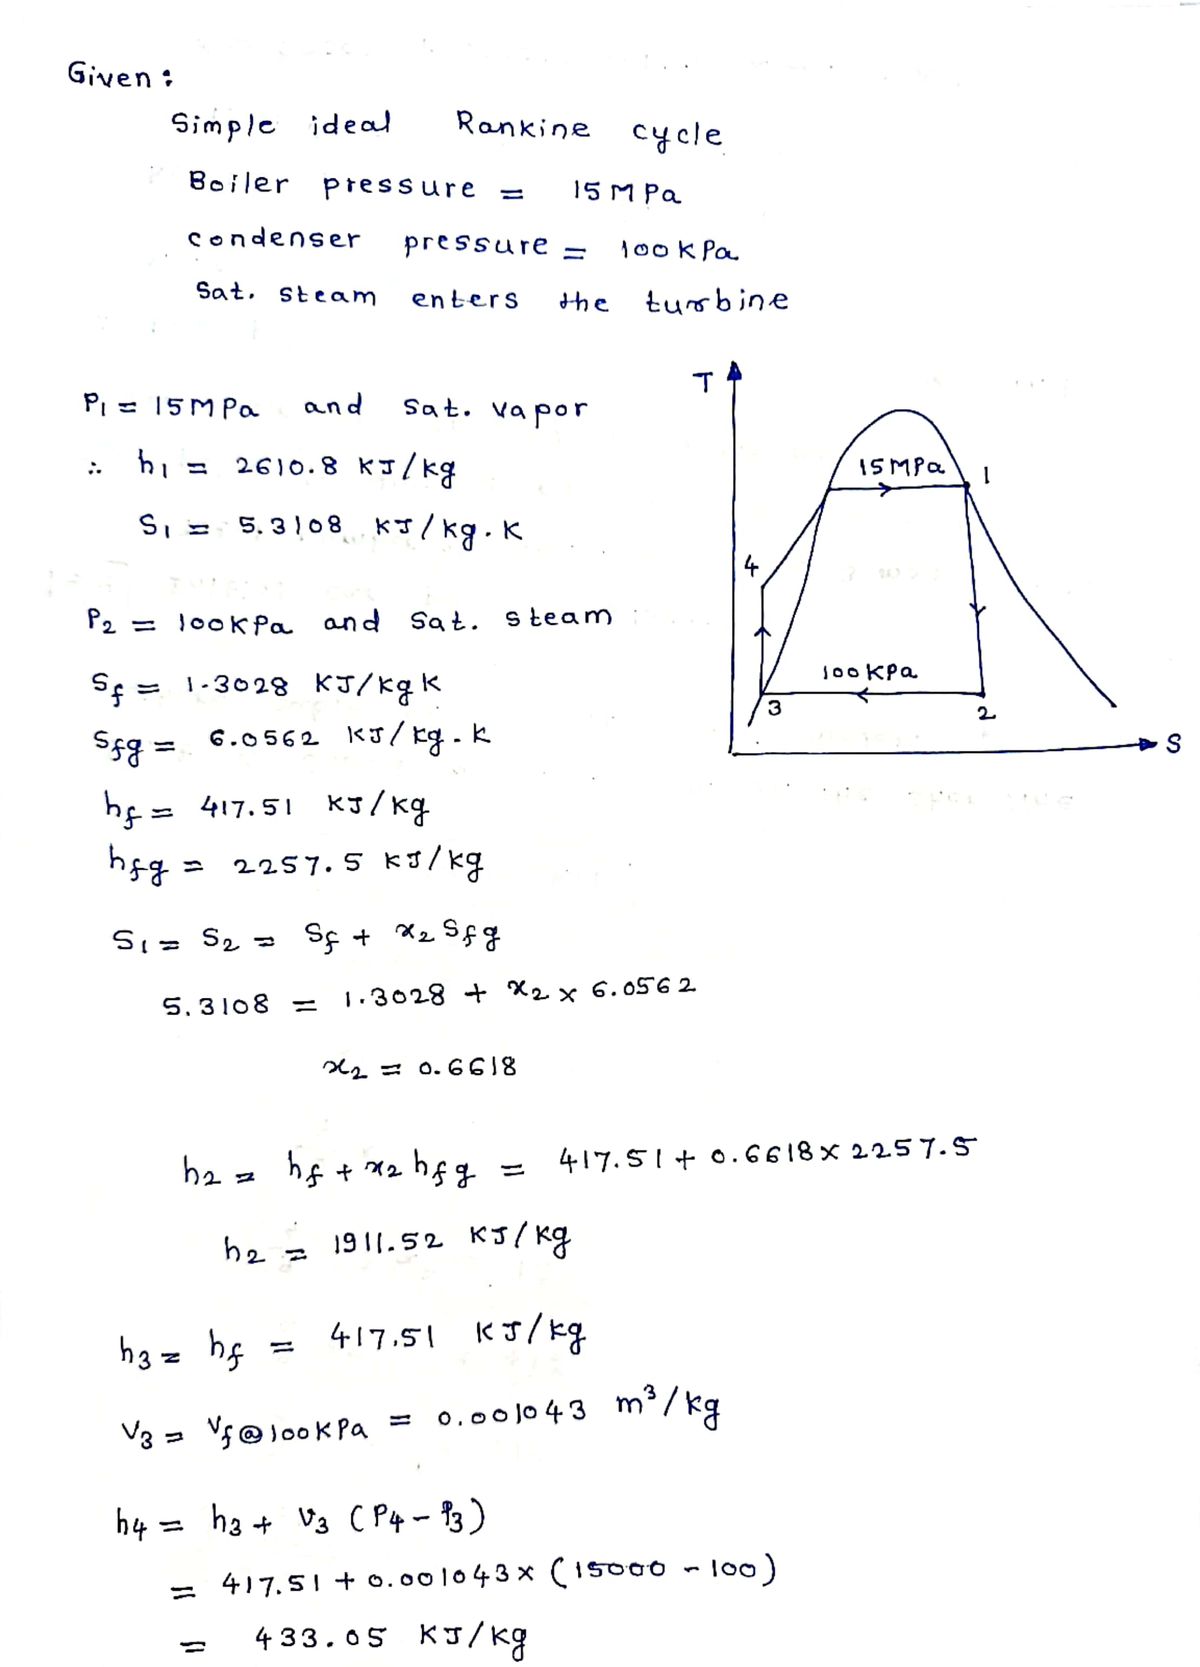 Given :
Simple ideal Rankine cycle
Boiler pressure = 15 MPa
condenser pressure = 100 KPa
Sat. steam enters the turbine
P₁ = 15MPa and sat. vapor
∴ h₁ = 2610.8 KJ/kg
S₁ = 5.3108 KJ/kg.K
P₂ = 100KPa and sat. steam
Sf = 1.3028 KJ/kg K
Sfg = 6.0562 KJ/kg.K
hf = 417.51 KJ/kg
hfg = 2257.5 KJ/kg
S₁ = S₂ = Sf + x₂ Sfg
5.3108 = 1.3028 + x₂ × 6.0562
x₂ = 0.6618
h₂ = hf + x₂ hfg = 417.51 + 0.6618 × 2257.5
h₂ = 1911.52 KJ/kg
h₃ = hf = 417.51 KJ/kg
V₃ = Vf@100KPa = 0.001043 m³/kg
h₄ = h₃ + V₃ (P₄ - P₃)
= 417.51 + 0.001043 × (15000 - 100)
= 433.05 KJ/kg
T
15MPa
1
4
100KPa
3
2
S